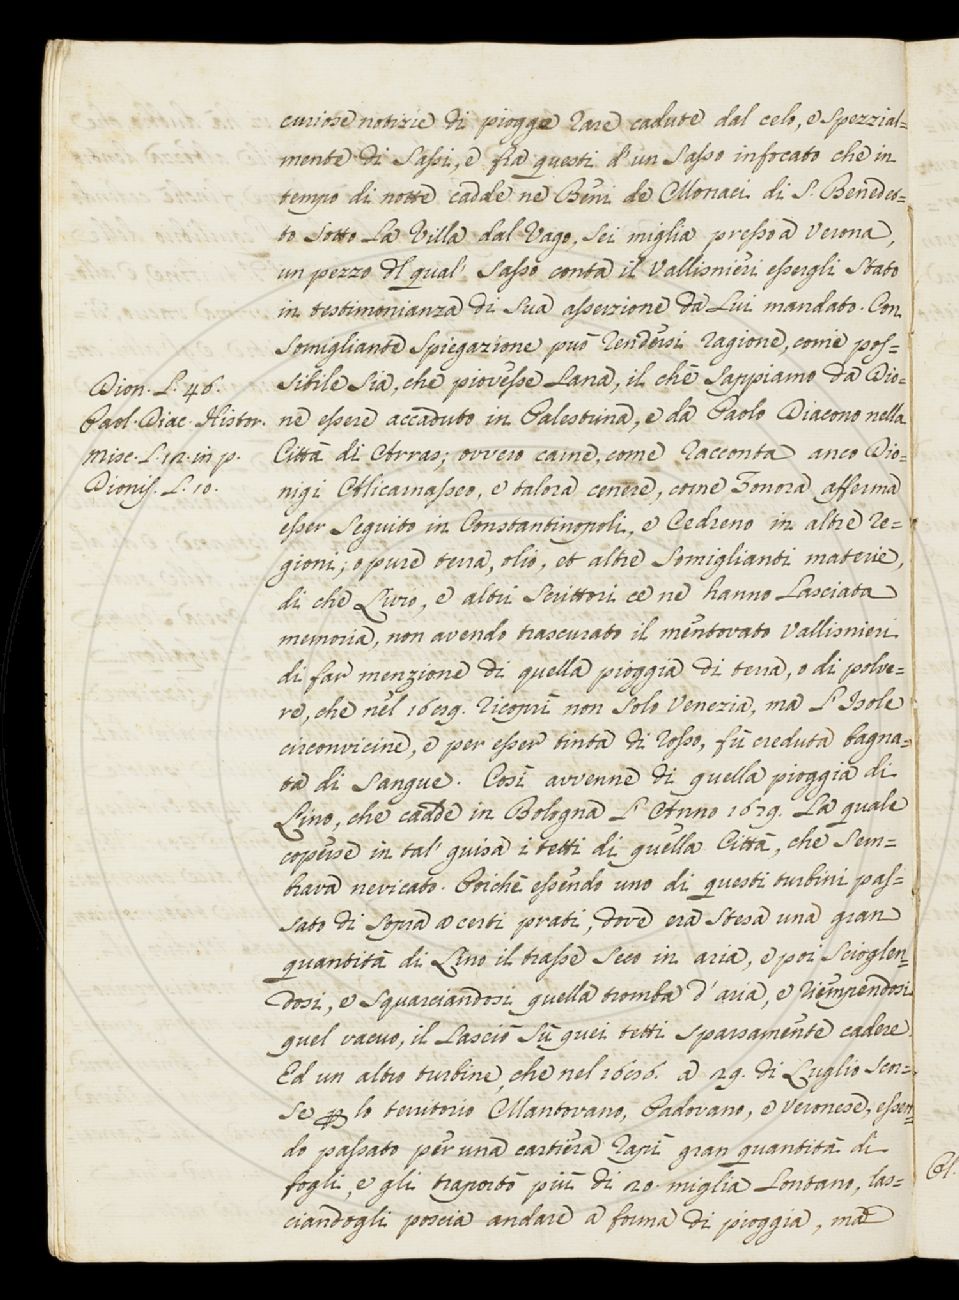 curiose notizie di piogge rare cadute dal celo, e spezzial=
mente di Sassi, e fra questi d'un Sasso infocato che in
tempo di notte cadde ne Beni de Monaci di S. Benedet=
to sotto La Villa dal Vago, sei miglia presso a Verona,
un pezzo dl qual' Sasso conta il Vallisnieri essergli stato
in testimonianza di Sua asserzione da Lui mandato. Con
somigliante spiegazione può rendersi ragione, come pos=
sibile sia, che piovesse Lana, il che sappiamo da Dio=
ne essere accaduto in Palestina, e da Paolo Diacono nella
Città di Arras; ovvero carne, come racconta anco Dio=
nigi Alicarnasseo, e talora cenere, come Zonora afferma
esser seguito in Constantinopoli, e Cedreno in altre re=
gioni; opure terra, olio, et altre somiglianti materie,
di che Livio, e altri Scrittori ce ne hanno Lasciata
memoria, non avendo trascurato il mentovato Vallisnieri
di far menzione di quella pioggia di terra, o di polve=
re, che nel 1689. ricoprì non solo Venezia, ma L'Isole
circonvicine, e per esser tinta di rosso, fù creduta bagna=
ta di Sangue. Così avvenne di quella pioggia di
Lino, che cadde in Bologna L'Anno 1679. La quale
coperse in tal' guisa i tetti di quella Città, che sem=
brava nevicato. Poichè essendo uno di questi turbini pas=
sato di sopra a certi prati, dove era stesa una gran
quantità di Lino il trasse seco in aria, e poi scioglen=
dosi, e squarciandosi quella tromba d'aria, e riempiendosi
quel vacuo, il Lasciò sù quei tetti sparsamente cadere.
Ed un altro turbine, che nel 1686. a 29. di Luglio scor=
se p lo territorio Mantovano, Padovano, e Veronese, essen=
do passato per una cartiera rapì gran quantità di
fogli, e gli traportò più di 20. miglia Lontano, las=
ciandogli poscia andare a forma di pioggia, ma
Dion. L. 46.
Paol. Diac. Histor.
misc. L. 12. in p.
Dionis. L. 10.